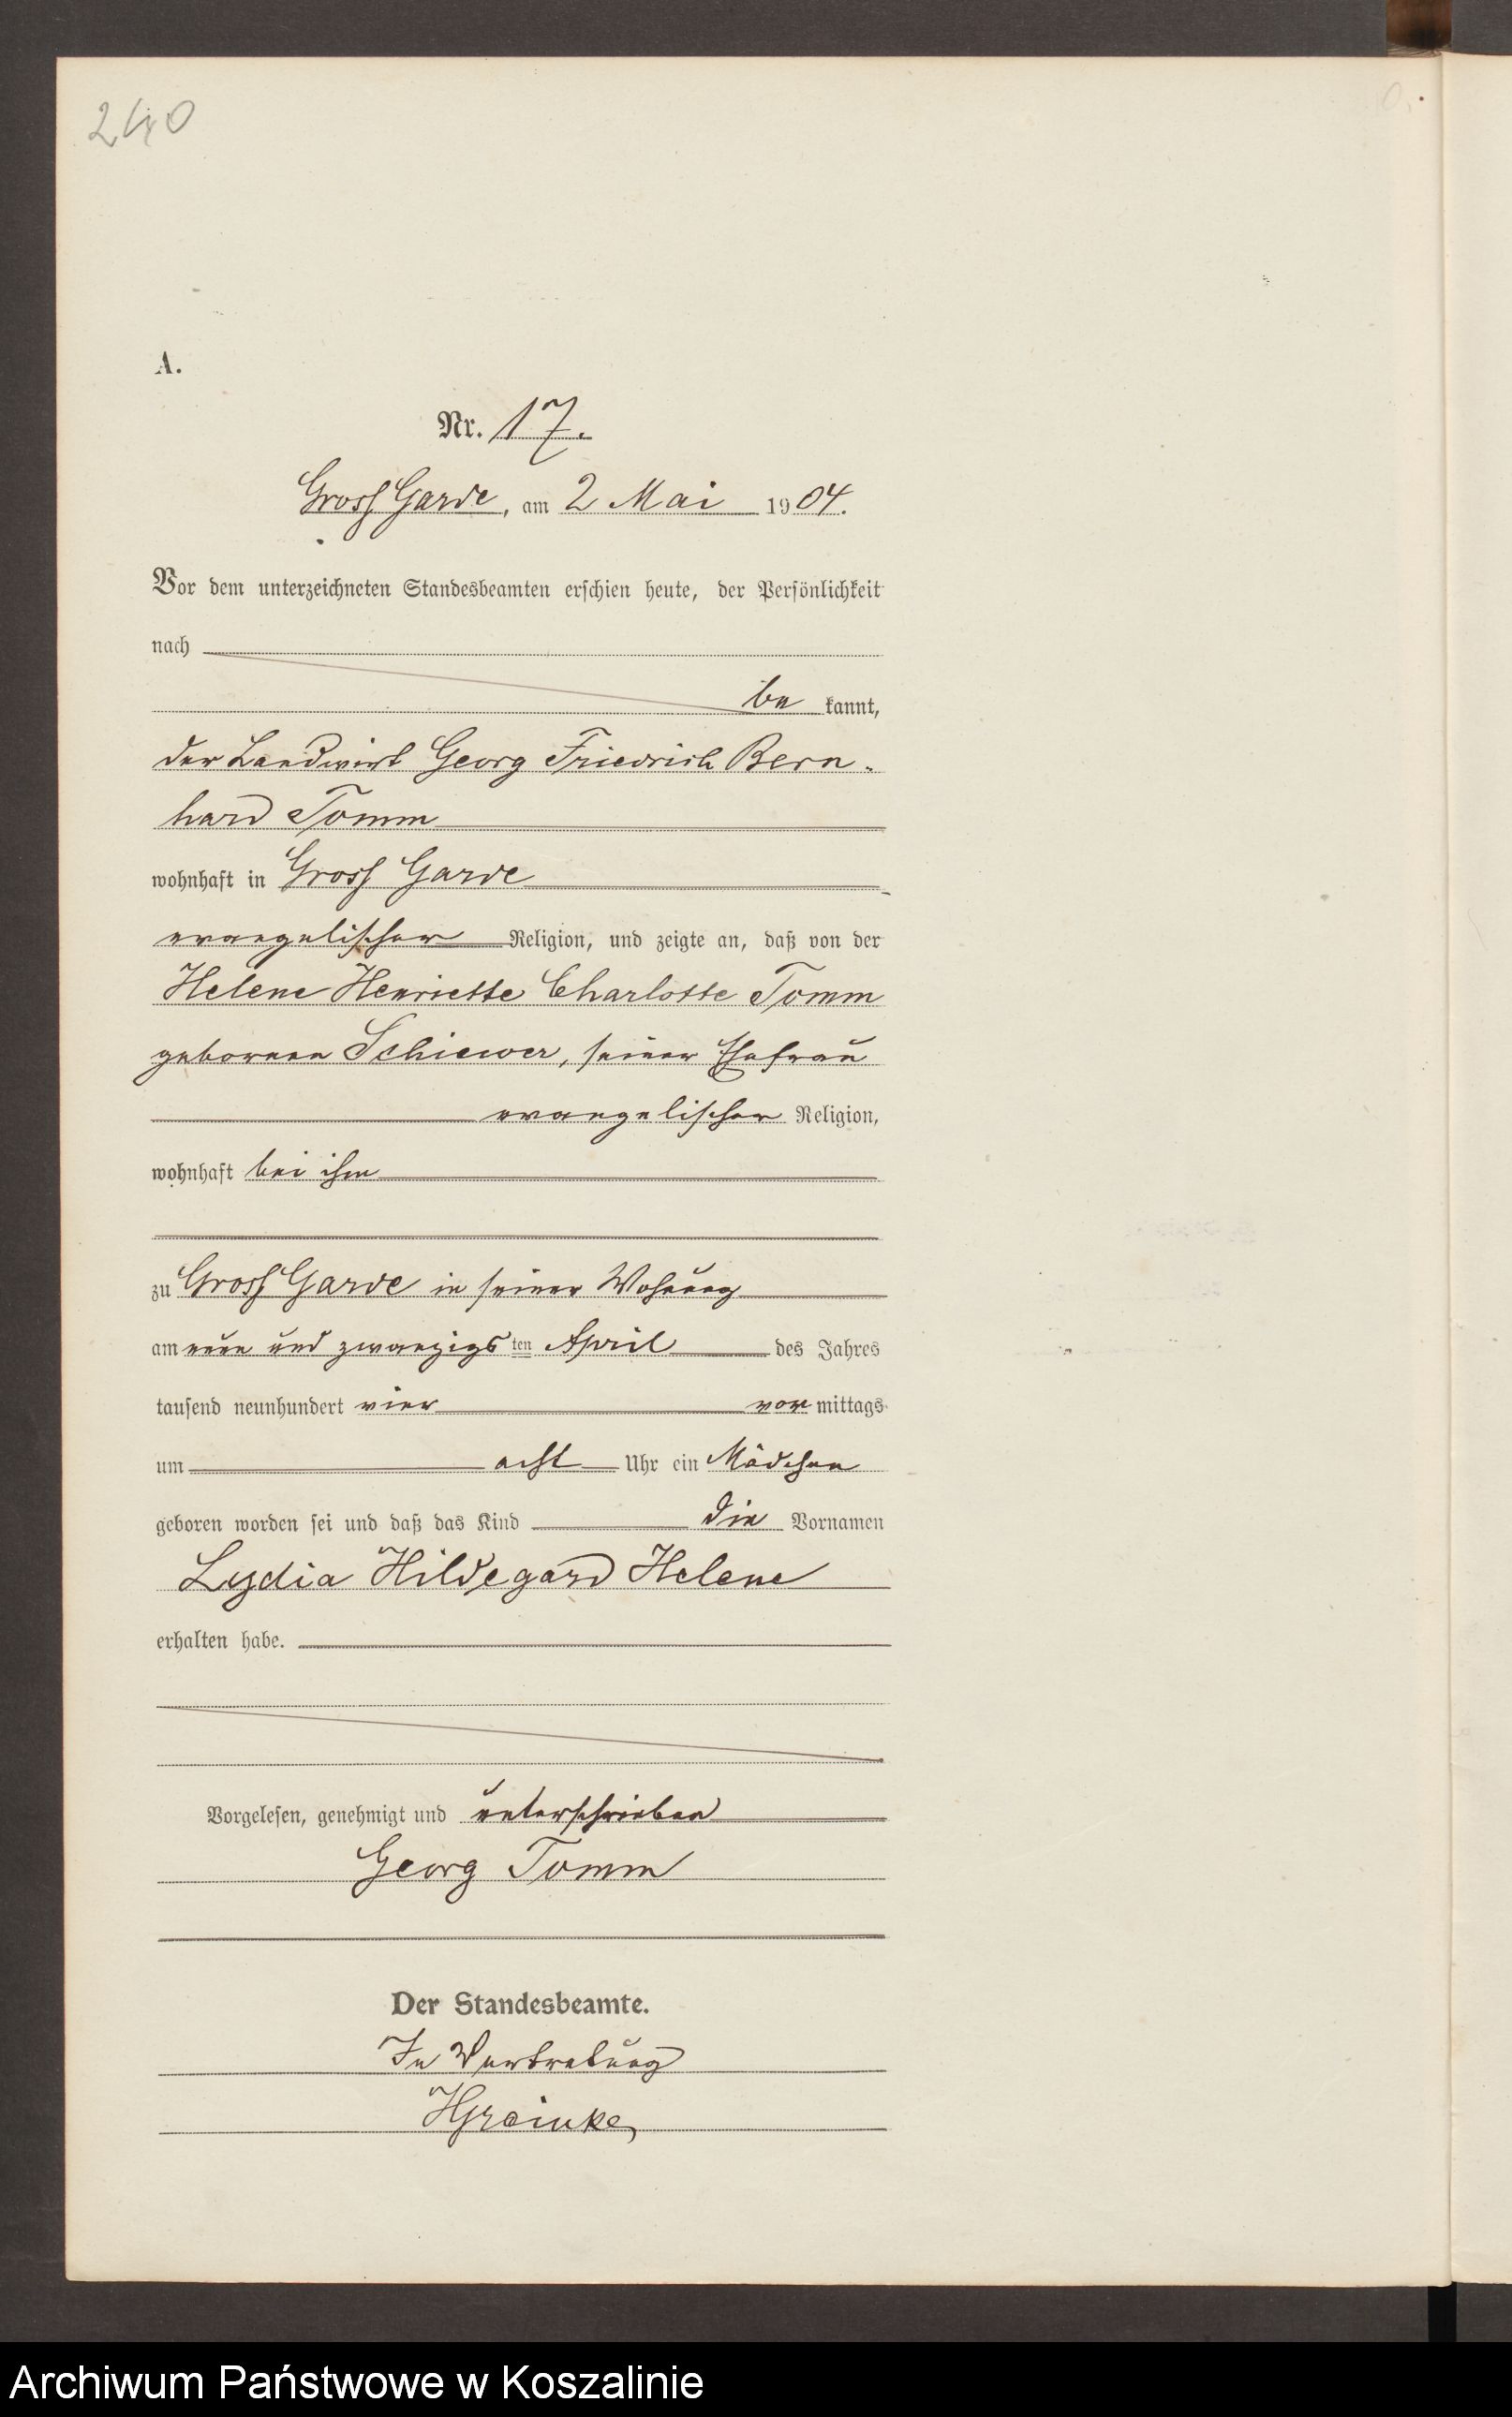 240
A.
Nr. 17.
Gross Garde, am 2 Mai 1904.
Vor dem unterzeichneten Standesbeamten erschien heute, der Persönlichkeit
nach
be kannt,
der Landwirt Georg Friedrich Bern-
hard Tomm
wohnhaft in Gross Garde
evangelischer Religion, und zeigte an, daß von der
Helene Henriette Charlotte Tomm
gebornen Schiewer, seiner Ehefrau
evangelischer Religion,
wohnhaft bei ihm
zu Gross Garde in seiner Wohnung
am neun und zwanzigs ten April des Jahres
tausend neunhundert vier vor mittags
um acht Uhr ein Mädchen
geboren worden sei und daß das Kind die Vornamen
Lydia Hildegard Helene
erhalten habe.
Vorgelesen, genehmigt und unterschrieben
Georg Tomm
Der Standesbeamte.
In Vertretung
Archiwum Państwowe w Koszalinie